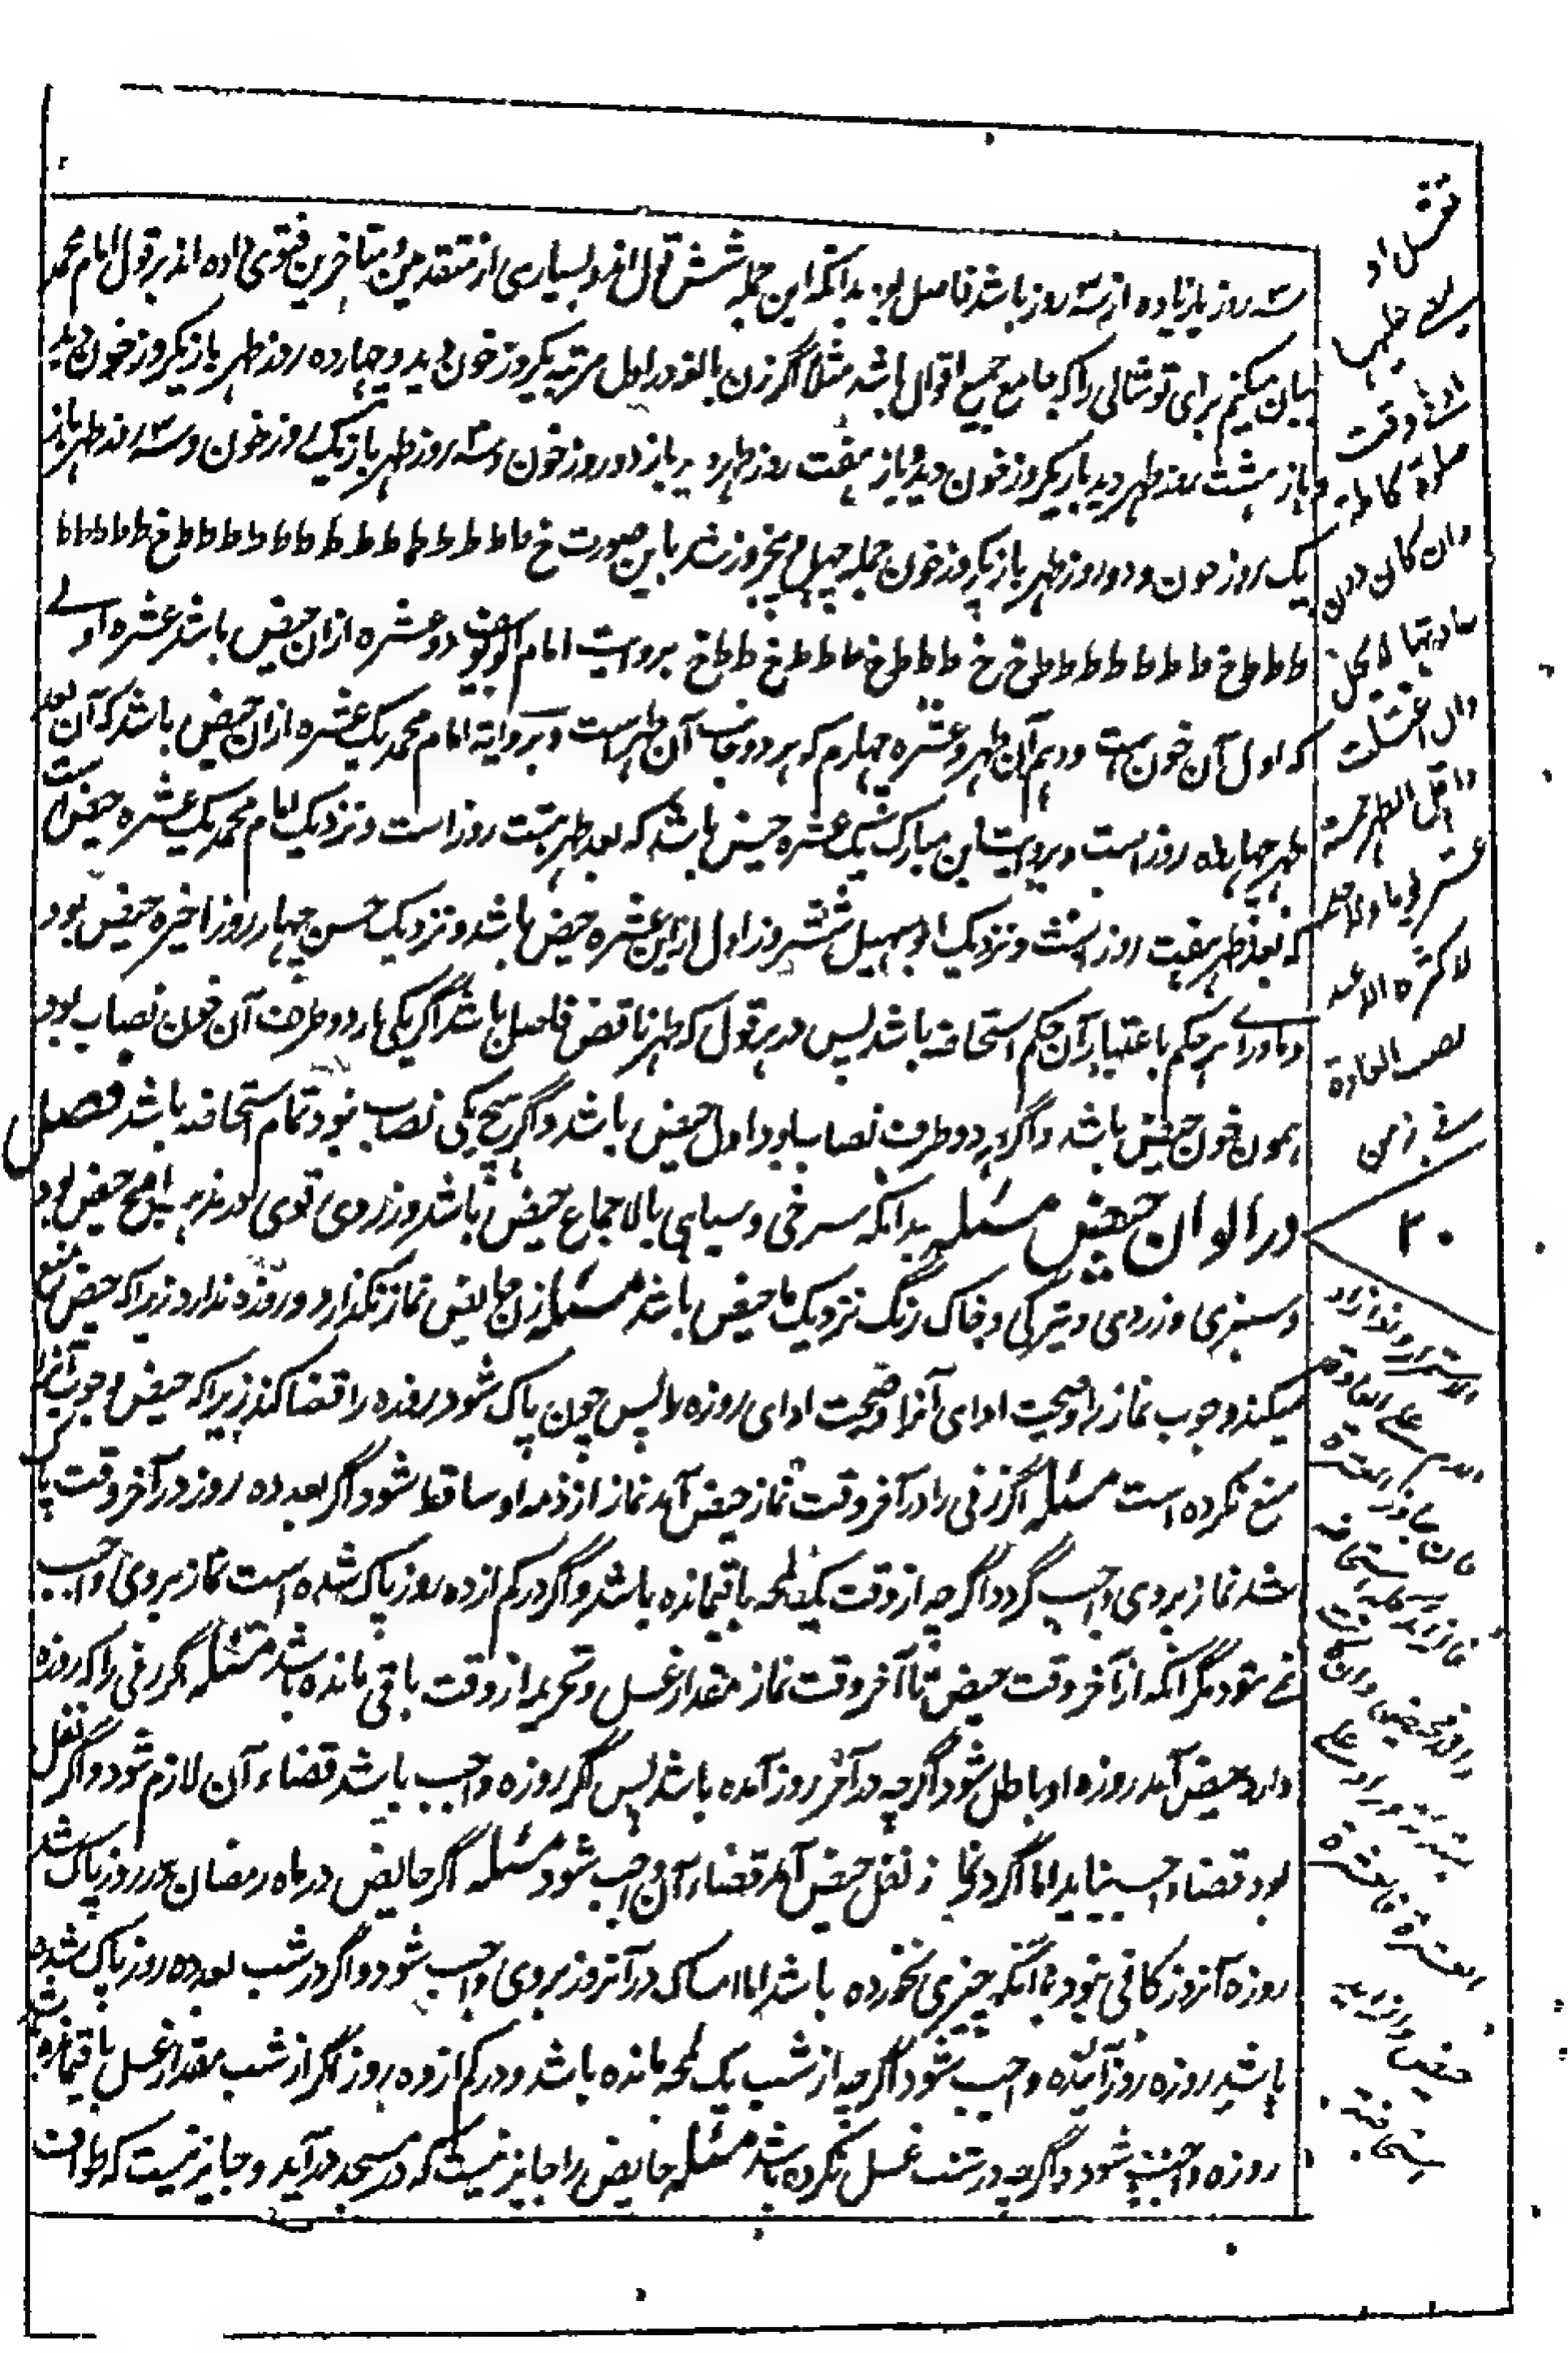 سه روز یا زیاده از سه روز باشد فاصل بود بدانکه این جمله شش قول اند و بسیاری از متقدمین و متاخرین فتوی داده اند بر قول امام محمد
بیان میکنیم برای تو مثالی را که جامع جمیع اقوال باشد مثلا اگر زن بالغه در اول مرتبه یکروز خون دید و چهارده روز طهر باز یکروز خون دید
و باز هشت روز طهر دید باز یکروز خون دید و باز هفت روز طهر دید باز دو روز خون و سه روز طهر باز یک روز خون و سه روز طهر باز
یک روز خون و دو روز طهر باز یکروز خون جمله چهل و پنجروز شد باین صورت خ ط ط ط ط ط ط ط ط ط ط ط ط ط ط خ ط ط ط ط ط
ط ط ط خ ط ط ط ط ط ط ط خ خ ط ط ط خ ط ط ط خ ط ط خ بروایت امام ابو یوسف دو عشره ازان حیض باشد عشره اولے
که اول آن خون ست و دهم آن طهر و عشره چهارم که هر دو جانب آن طهر است و بروایة امام محمد یک عشره ازان حیض باشد که آن بعد
طهر چهارده روز است و بروایت ابن مبارک یک عشره حیض باشد که بعد طهر هشت روز است و نزدیک امام محمد یک عشره حیض است
که بعد طهر هفت روز است و نزدیک ابو سهیل شش روز اول ازین عشره حیض باشد و نزدیک حسن چهار روز اخیره حیض بود
و ماورای هر حکم باعتبار آن حکم استحاضه باشد پس در هر قول که طهر ناقض فاصل باشد اگر یکی از دو طرف آن خون نصاب بود
همون خون حیض باشد و اگر هر دو طرف نصاب بود اول حیض باشد و اگر هیچ یکی نصاب نبود تمام استحاضه باشد فصل
در الوان حیض مسئله بدانکه سرخی و سیاهی بالاجماع حیض باشد و زردی قوی در مذهب اصح حیض بود
و سبزی و زردی و تیرگی و خاک رنگ نزدیک ما حیض باشد مسئله زن حایض نماز نگذارد و روزه ندارد زیرا که حیض منع
میکند وجوب نماز را و صحت ادای آنرا و صحت ادای روزه را پس چون پاک شود روزه را قضا کند زیرا که حیض وجوب آنرا
منع نکرده است مسئله اگر زنی را در آخر وقت نماز حیض آمد نماز از ذمه او ساقط شود و اگر بعد ده روز در آخر وقت پاک
شد نماز بر وی واجب گردد اگر چه از وقت یک لمحه باقیمانده باشد و اگر در کم از ده روز پاک شده است نماز بر وی واجب
نمے شود مگر آنکه از آخر وقت حیض تا آخر وقت نماز مقدار غسل و تحریمه از وقت باقی مانده باشد مسئله اگر زنی را که روزه
دارد حیض آمد روزه او باطل شود اگر چه در آخر روز آمده باشد پس اگر روزه واجب باشد قضاء آن لازم شود و اگر نفل
بود قضاء واجب نیاید اما اگر در نماز نفل حیض آمد قضاء آن واجب شود مسئله اگر حایض در ماه رمضان در روز پاک شد
روزه آنروز کافی نبود با آنکه چیزی نخورده باشد اما امساک در آنروز بر وی واجب شود و اگر در شب بعد ده روز پاک شده
باشد روزه روز آینده واجب شود اگر چه از شب یک لمحه مانده باشد و در کم از ده روز اگر از شب مقدار غسل باقیمانده باشد
روزه واجب شود و اگر چه در شب غسل نکرده باشد مسئله حایض را جایز نیست که در مسجد در آید و جایز نیست که طواف
صلوة کاملة
وان کان دون
عادتها لا یحل
وان اغتسلت
واقل الطهر خمسة
عشر یوما ولا حد
لاکثره الا عند
نصب العادة
فی زمن
۲۰